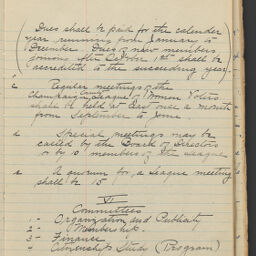 (Dues shall be paid for the calendar
year running from January to
December. Dues of new members
coming after October 1st shall be
accredited to the succeeding year.
Regular meetings of the
Champaign County League of Women Voters
shall be held at least once a month
from September to June.
Special meetings may be
called by the Board of Directors
or by 10 members of the League
A quorum for a League meeting
shall be 15
VI
Committees
1- Organization and Publicity
2- Membership.
3- Finance
4- Citizenship Study (Program)